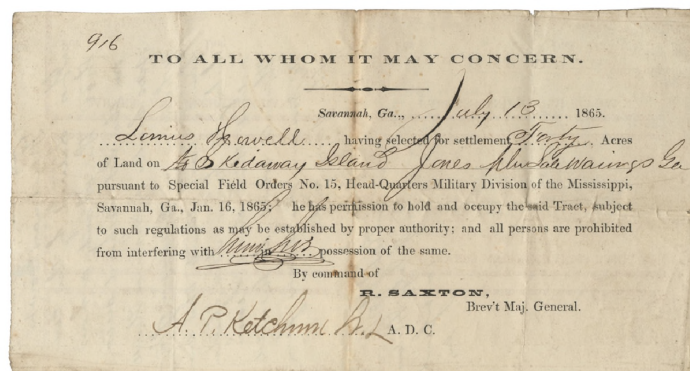 916
TO ALL WHOM IT MAY CONCERN.
Savannah, Ga., July 13 1865.
Howell having selected for settlement Forty Acres
of Land on Skidaway Island Jones Ga
pursuant to Special Field Orders No. 15, Head-Quarters Military Division of the Mississippi,
Savannah, Ga., Jan. 16, 1865; he has permission to hold and occupy the said Tract, subject
to such regulations as may be established by proper authority; and all persons are prohibited
from interfering with him in his possession of the same.
By command of
R. SAXTON,
Brev't Maj. General.
A. P. Ketchum A. D. C.